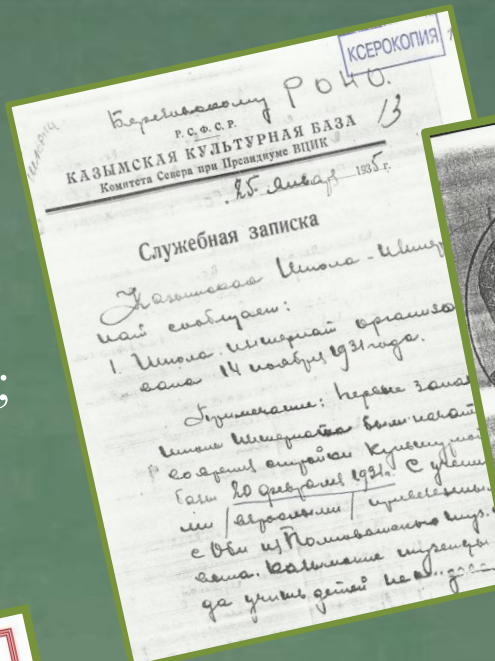 КСЕРОКОПИЯ
Березовскому РОНО.
13
Р. С. Ф. С. Р.
КАЗЫМСКАЯ КУЛЬТУРНАЯ БАЗА
Комитета Севера при Президиуме ВЦИК
25 января 1935 г.
Служебная записка
Казымская Школа-Интер
нат сообщает:
1. Школа-интернат организо
вана 14 ноября 1931 года.
Примечание: Первые заня
школе интерната были начат
во время стройки Культурной
базы 20 февраля 1931г. С учени
ми /взрослыми/ привезенны
с Оби из Полноватского туз.
да учить детей не
;